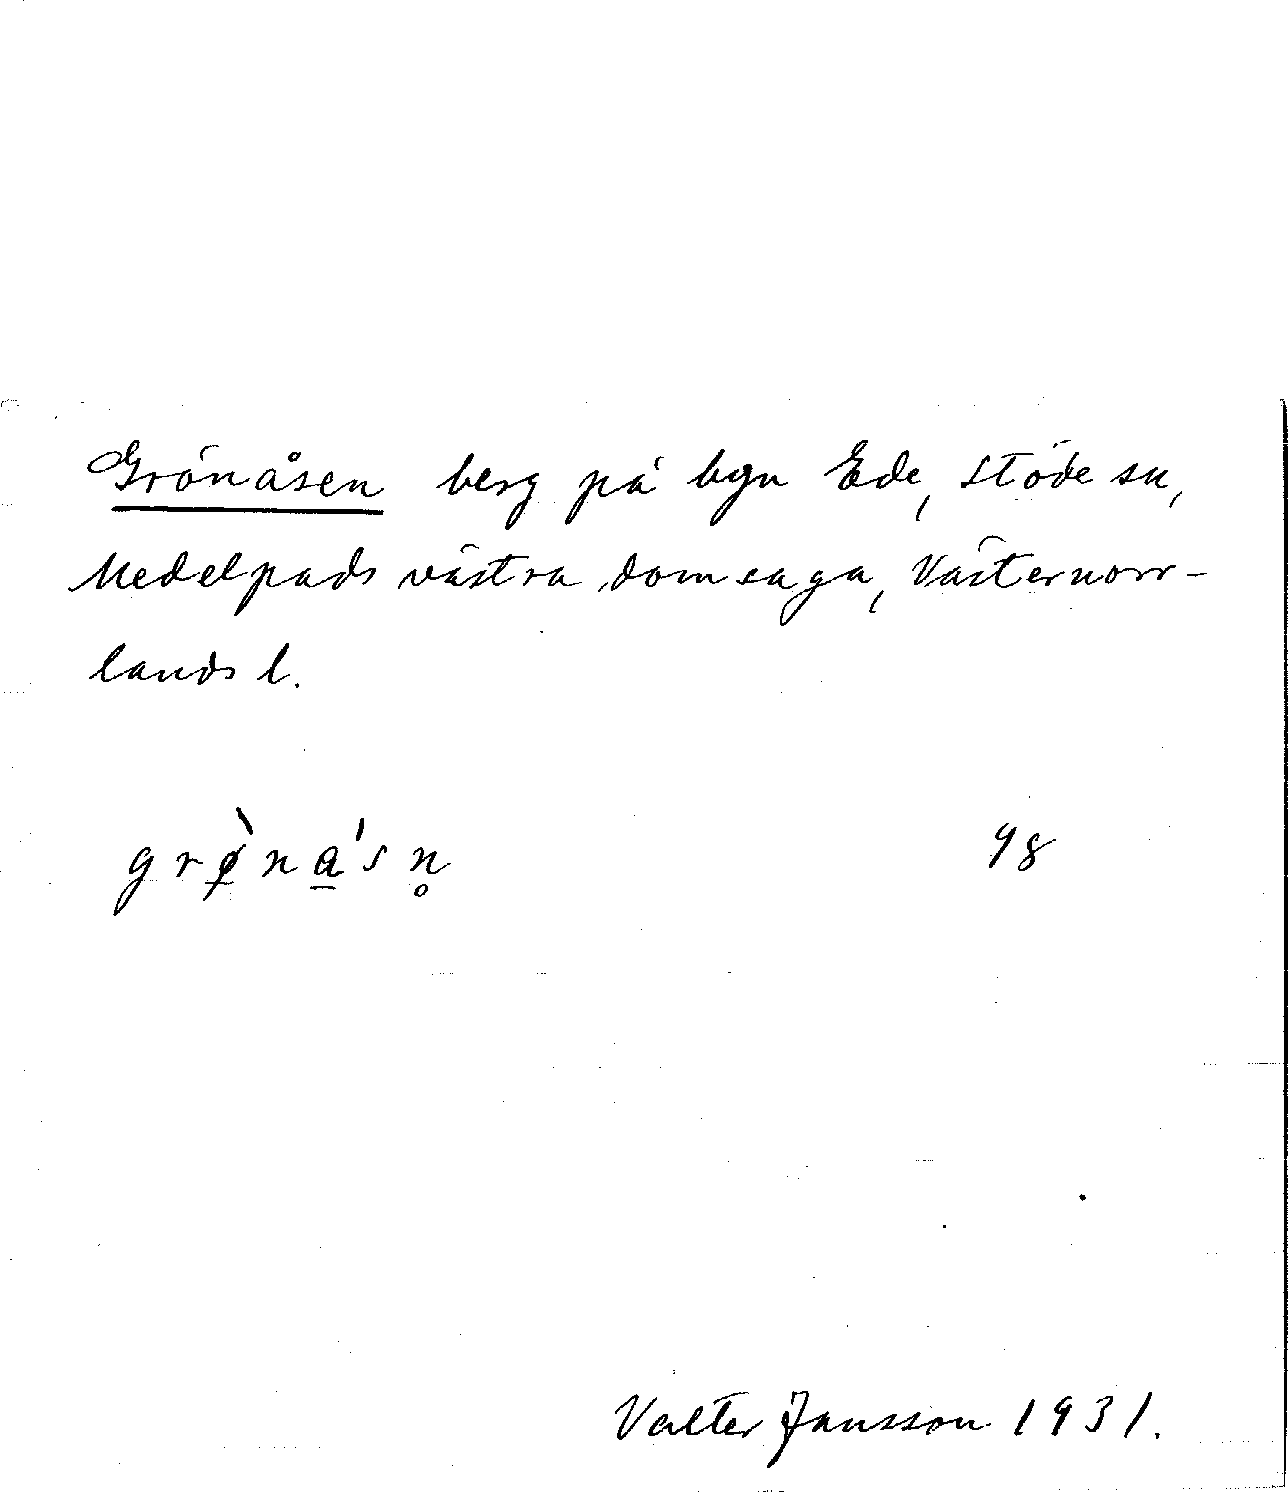 Grönåsen berg på byn Ede, Stöde sn,
Medelpads västra domsaga, Västernorr-
lands l.
grø̠̀na̠'sn̥ 98
Valter Jansson 1931.